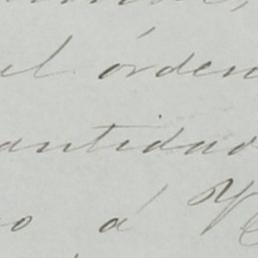 el órden
antidad
o á V